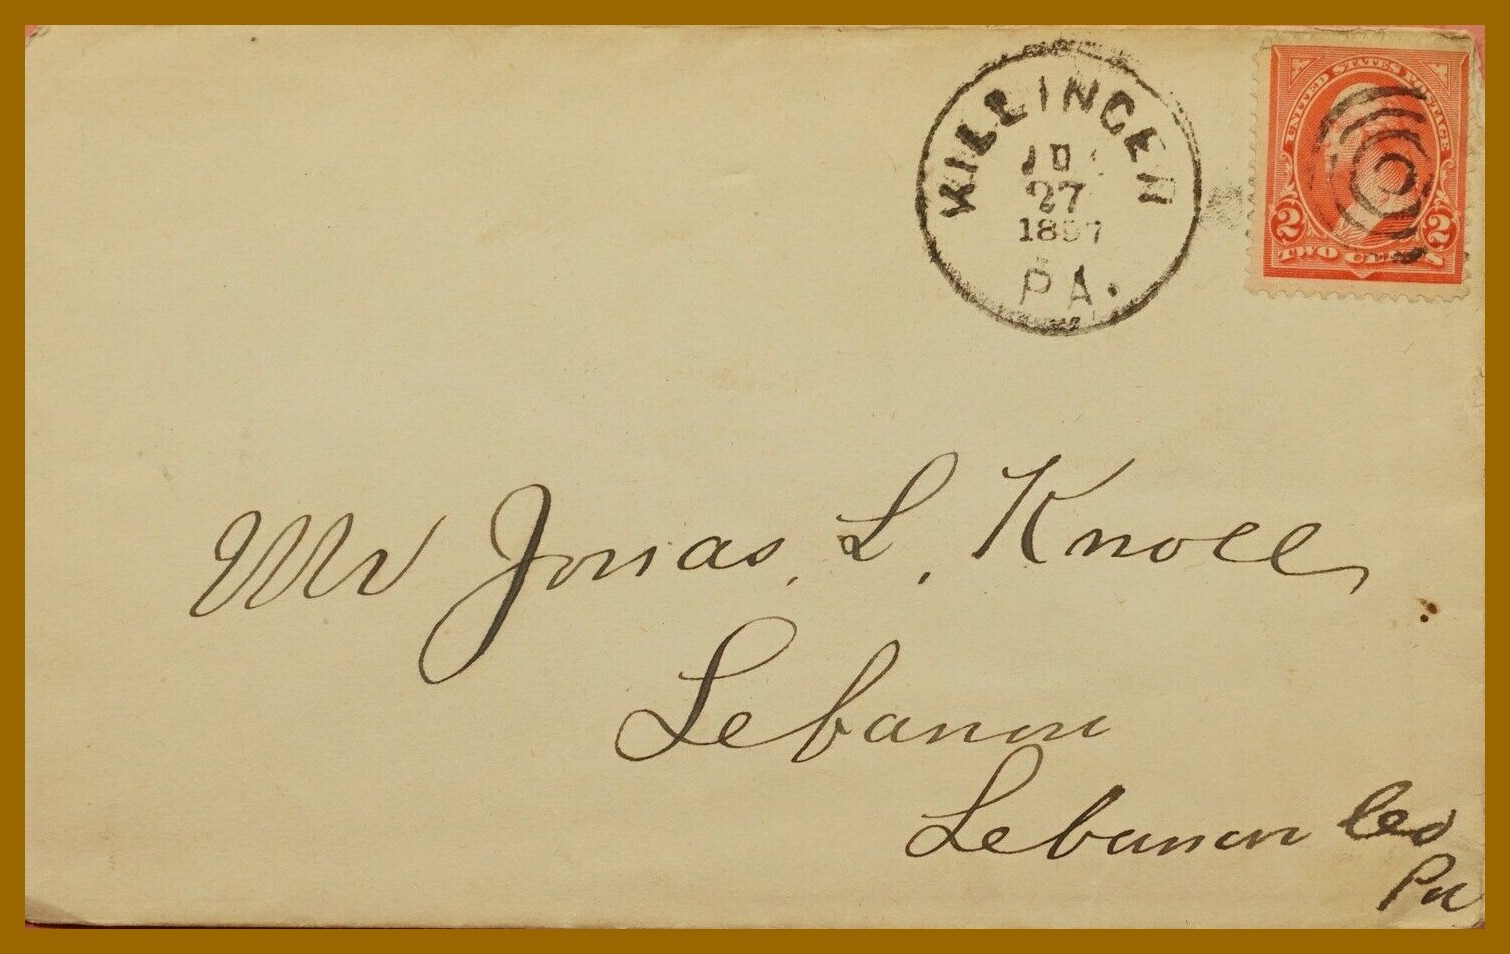 KILLINGER
27
1897
PA.
UNITED STATES POSTAGE
2 2
TWO CENTS
Mr Jonas. L. Knoll,
Lebanon
Lebanon Co
Pa